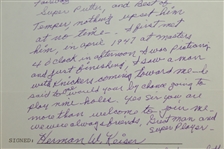 Super Putter, and Best of
Temper, nothing upset him
at no time. I first met
him, in april, 1937, at masters
4 o'clock in afternoon I was practicing
and just finishing, I saw a man
with Knickers coming toward me - he
said would you by chance going to
play nine holes. Yes sir you are
more than welcome to join me.
we were always friends, Great man and
super Player.
SIGNED: Herman W. Keiser